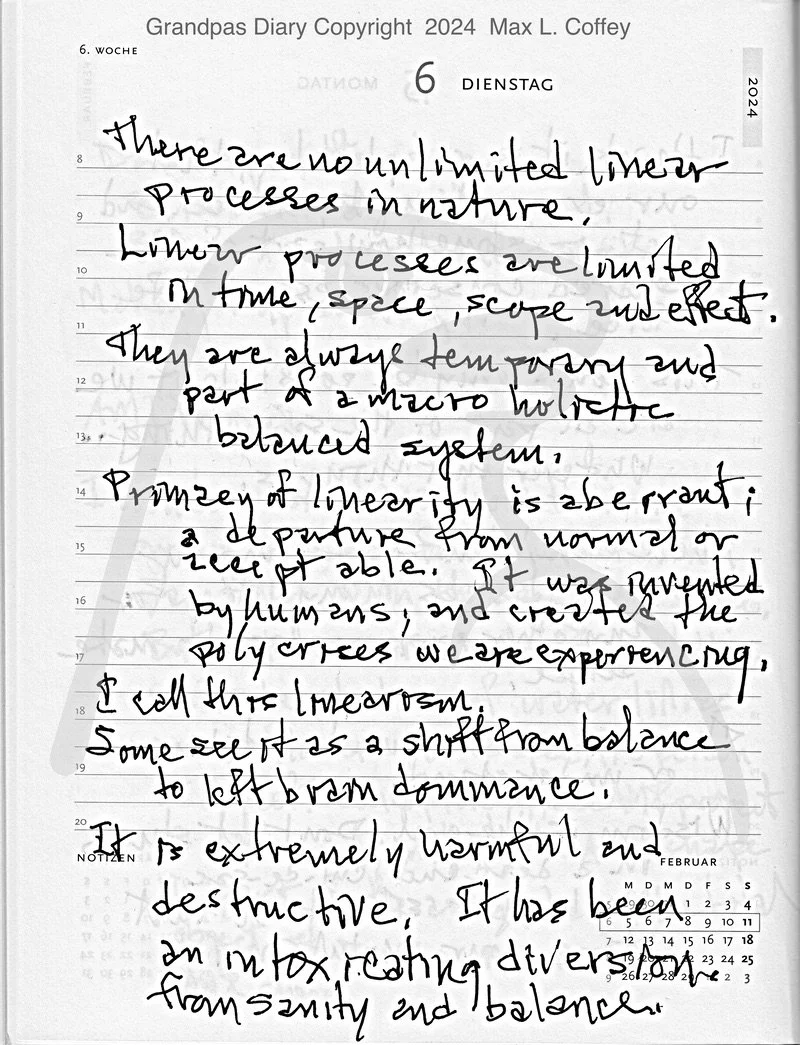 Grandpas Diary Copyright 2024 Max L. Coffey
6. WOCHE
6 DIENSTAG
2024
There are no unlimited linear
8
processes in nature.
9
Linear processes are limited
10
in time, space, scope and effect.
11
They are always temporary and
12
part of a macro holistic
13
balanced system.
14
Primacy of linearity is aberrant;
a departure from normal or
15
acceptable. It was invented
16
by humans, and created the
17
poly crises we are experiencing.
I call this linearism.
18
Some see it as a shift from balance
19
to left brain dominance.
20
It is extremely harmful and
NOTIZEN
FEBRUAR
M D M D F S S
destructive. It has been
5 29 30 31 1 2 3 4
6 5 6 7 8 9 10 11
7 12 13 14 15 16 17 18
an intoxicating diversion
19 20 21 22 23 24 25
9 26 27 28 29 1 2 3
from sanity and balance.